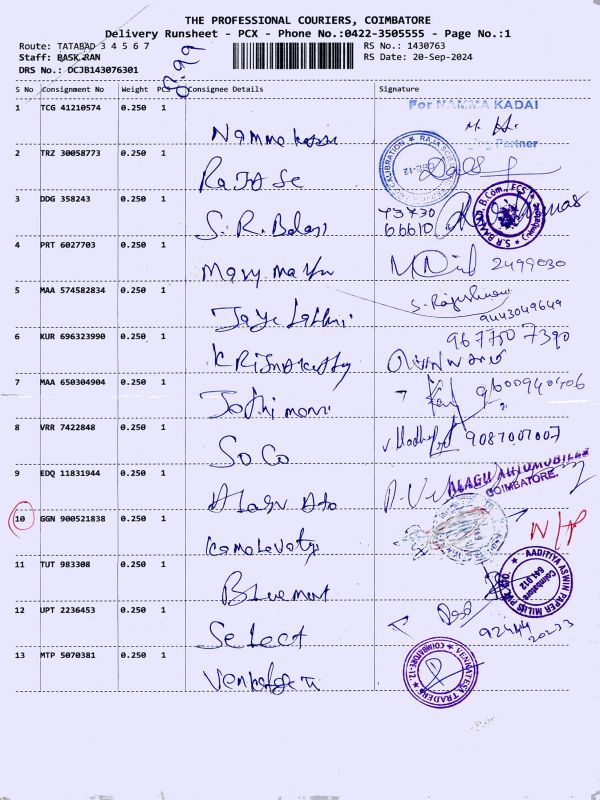 THE PROFESSIONAL COURIERS, COIMBATORE
Delivery Runsheet - PCX - Phone No.:0422-3505555 - Page No.:1
Route: TATABAD 3 4 5 6 7
RS No.: 1430763
Staff: BASKARAN
RS Date: 20-Sep-2024
DRS No.: DCJB143076301
S No Consignment No Weight PCS Consignee Details Signature
1 TCG 41210574 0.250 1 For NAMMA KADAI
Partner
2 TRZ 30058773 0.250 1
3 DDG 358243 0.250 1 S. R. Balaji 73730
66610
4 PRT 6027703 0.250 1 2499030
5 MAA 574582834 0.250 1 S. Rajeshwari
9443049649
6 KUR 696323990 0.250 1 967750 7390
7 MAA 650304904 0.250 1 Jothi mani 9600940406
8 VRR 7422848 0.250 1 SoCo 9087007007
9 EDQ 11831944 0.250 1 ALAGU AUTOMOBILES
COIMBATORE.
10 GGN 900521838 0.250 1 N/P
11 TUT 983308 0.250 1 AADITIYA ASWIN PAPER MILLS PVT. LTD.
Coimbatore
641 012
12 UPT 2236453 0.250 1 Select 92444
20233
13 MTP 5070381 0.250 1 VENKATESA TRADERS
COIMBATORE-12.